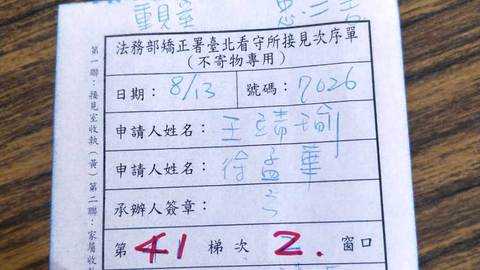 法務部矯正署臺北看守所接見次序單
(不寄物專用)
日期：8/13 號碼：7026
申請人姓名：王靖瑜
申請人姓名：徐孟華
承辦人簽章：
第 41 梯次 2. 窗口
第一聯：接見室收執(黃)第二聯：家屬收